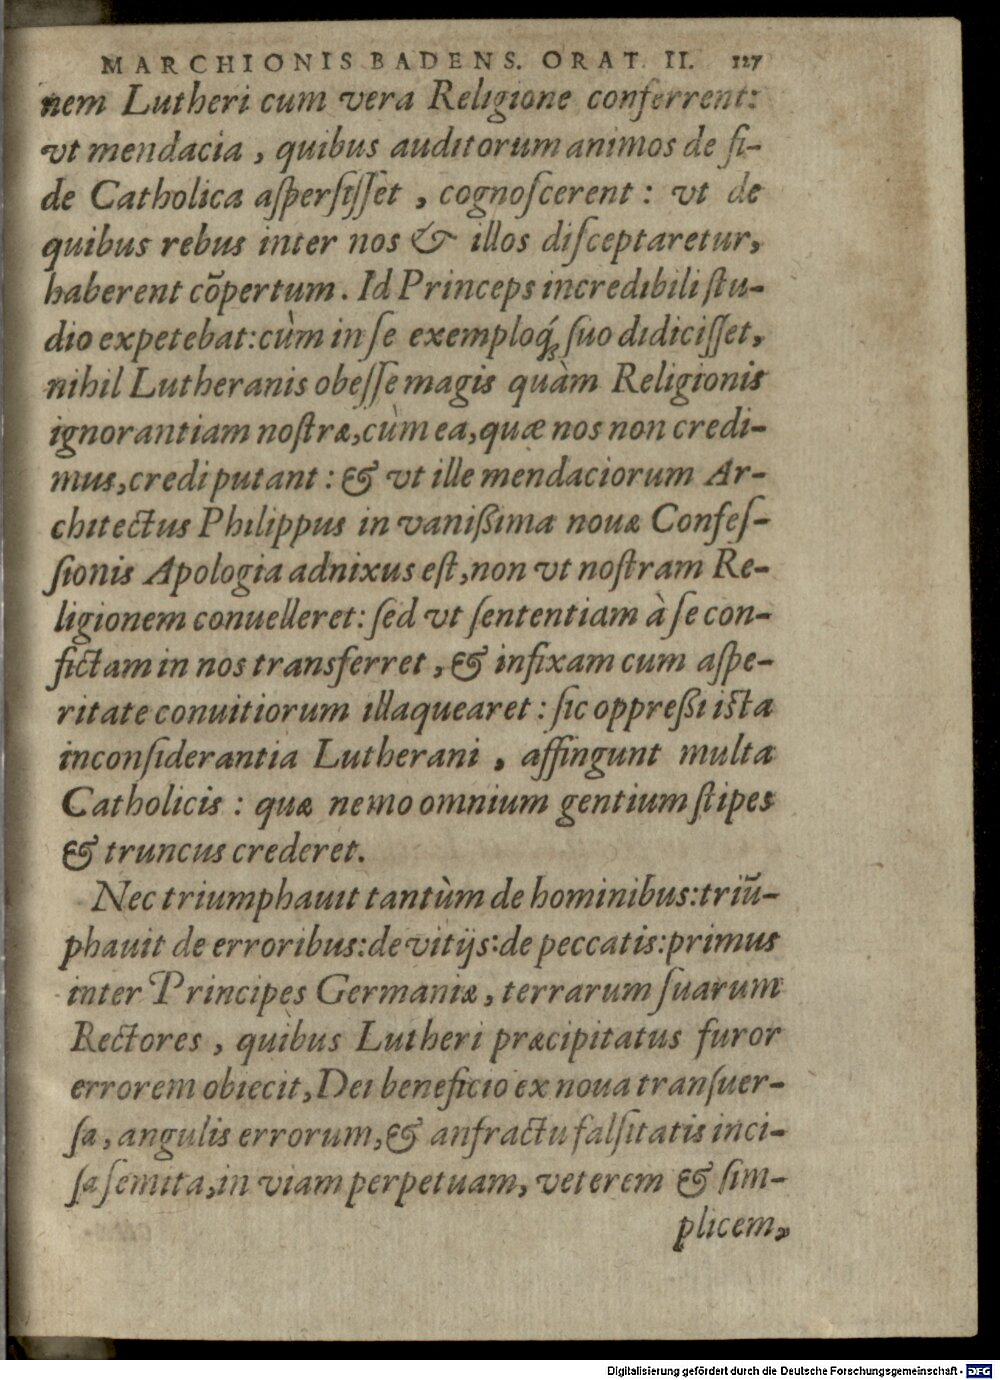 MARCHIONIS BADENS. ORAT. II. 127
nem Lutheri cum vera Religione conferrent:
vt mendacia, quibus auditorum animos de fi-
de Catholica aſperſiſſet, cognoſcerent: vt de
quibus rebus inter nos & illos diſceptaretur,
haberent cõpertum. Id Princeps incredibili ſtu-
dio expetebat: cùm in ſe exemploq́; ſuo didiciſſet,
nihil Lutheranis obeſſe magis quàm Religionis
ignorantiam noſtræ, cùm ea, quæ nos non credi-
mus, credi putant: & vt ille mendaciorum Ar-
chitectus Philippus in vanißima nouæ Confeſ-
ſionis Apologia adnixus eſt, non vt noſtram Re-
ligionem conuelleret: ſed vt ſententiam à ſe con-
fictam in nos transferret, & infixam cum aſpe-
ritate conuitiorum illaquearet: ſic oppreßi iſta
inconſiderantia Lutherani, affingunt multa
Catholicis: quæ nemo omnium gentium ſtipes
& truncus crederet.
Nec triumphauit tantùm de hominibus: triũ-
phauit de erroribus: de vitijs: de peccatis: primus
inter Principes Germaniæ, terrarum ſuarum
Rectores, quibus Lutheri præcipitatus furor
errorem obiecit, Dei beneficio ex noua tranſuer-
ſa, angulis errorum, & anfractu falſitatis inci-
ſa ſemita, in viam perpetuam, veterem & ſim-
plicem,
Digitalisierung gefördert durch die Deutsche Forschungsgemeinschaft - DFG